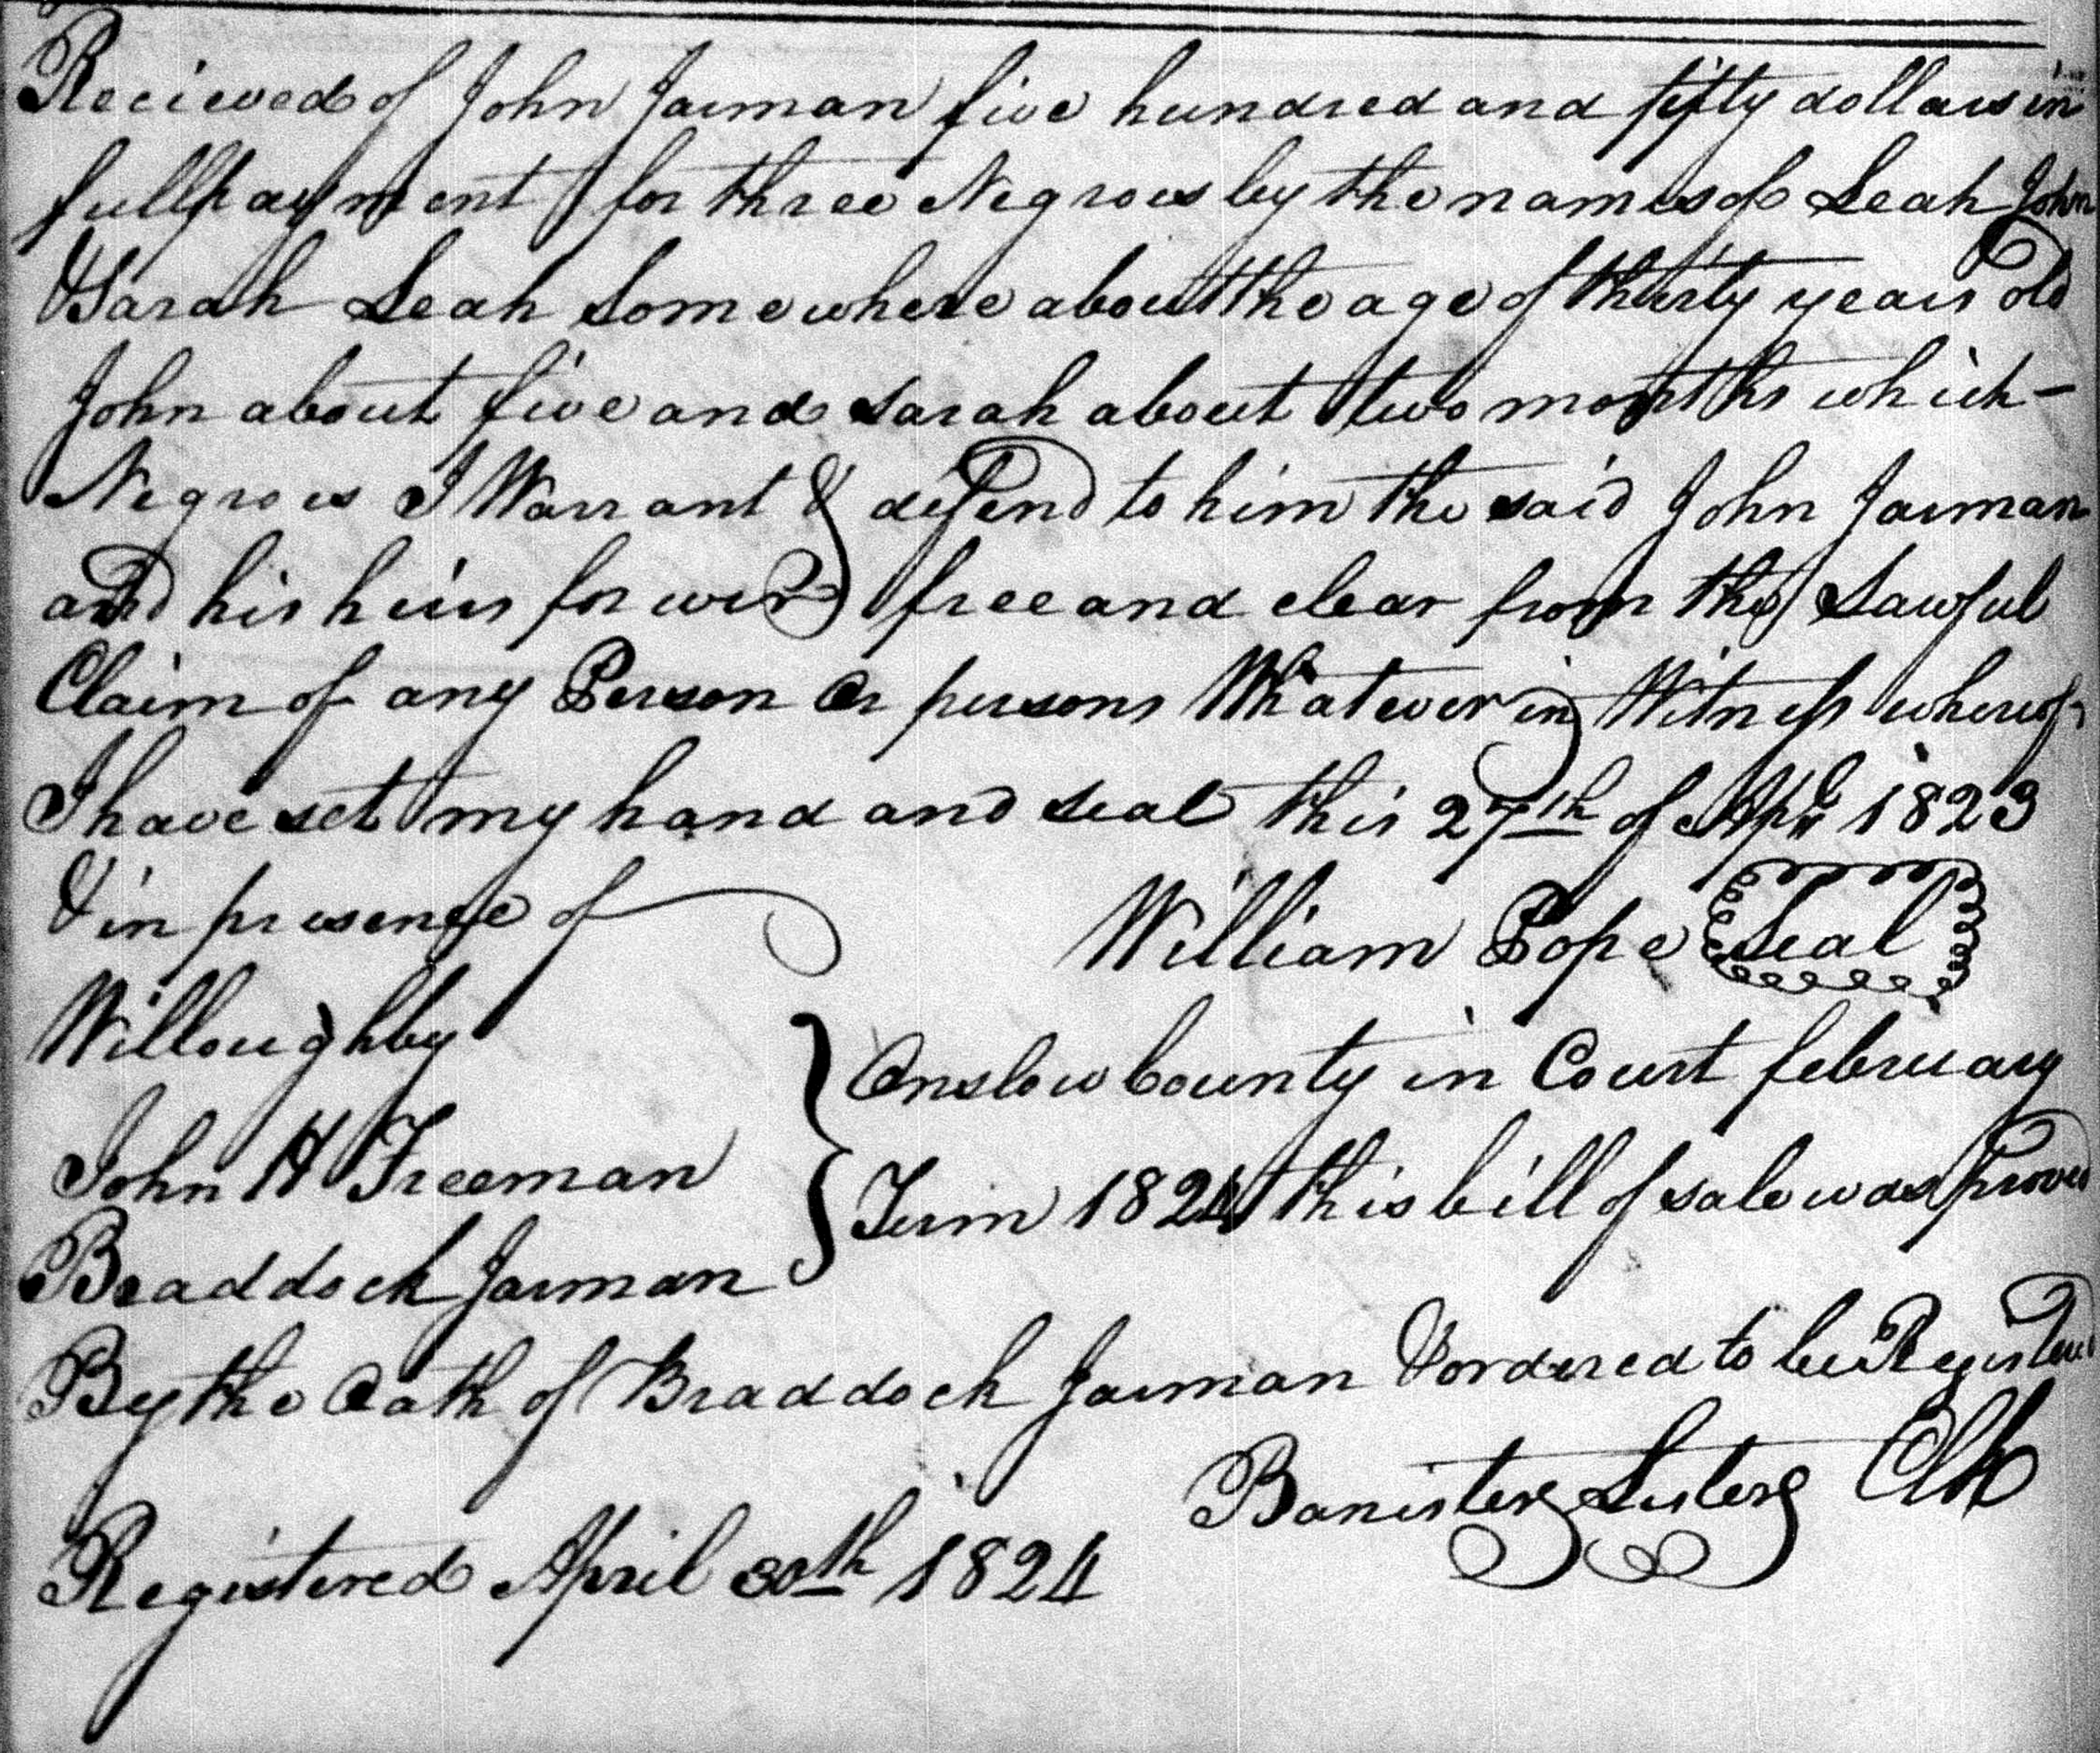 Recieved of John Jarman five hundred and fifty dollars in
full payment for three Negroes by the names of Leah John
& Sarah Leah Somewhere about the age of thirty years old
John about five and Sarah about two months which –
Negroes I Warrant & defend to him the said John Jarman
and his heirs for ever free and clear from the Lawful
Claim of any Person Or persons Whatever in Witness whereof
I have set my hand and seal this 27th of Apl 1823
& in presence of
William Pope Seal
Willoughby
John H Freeman
Braddock Jarman
Onslow County in Court february
Term 1824 this bill of sale was proved
By the Oath of Braddock Jarman & ordered to be Registered
Banister Lester Clk
Registered April 30th 1824